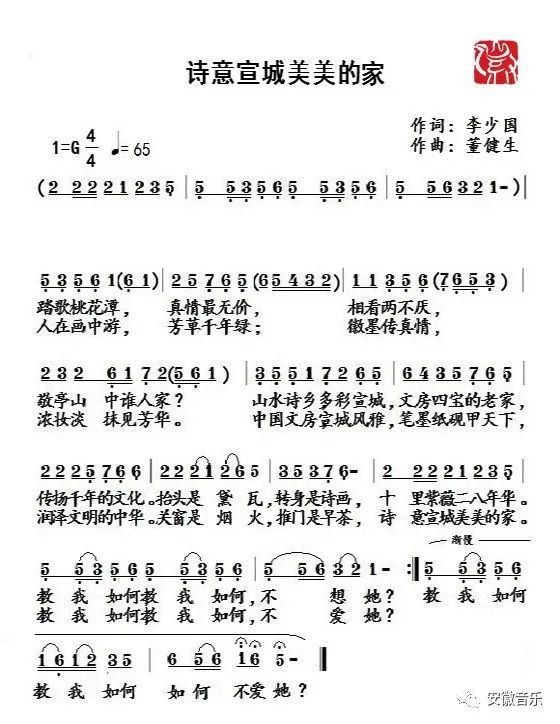 诗意宣城美美的家
作词：李少国
1=G 4/4 ♩= 65
作曲：董健生
(2 22 21 235 | 5 535 65 5 535 6 | 5 56 321-)|
5 35 6 1(6 1) | 25 765(65432) | 1135 6(7653) |
踏歌桃花潭， 真情最无价， 相看两不厌，
人在画中游， 芳草千年绿； 徽墨传真情，
232 6172(561) | 355172 65 | 64355172 |
敬亭山 中谁人家？ 山水诗乡多彩宣城,文房四宝的老家,
浓妆淡 抹见芳华。 中国文房宣城风雅,笔墨纸砚甲天下,
2225766 | 2221 265 | 3537 6- | 2 221 2176 |
传扬千年的文化。抬头是 黛 瓦,转身是诗画， 十 里紫薇二八年华。
润泽文明的中华。关窗是 烟 火,推门是早茶， 诗 意宣城美美的家。
渐慢
5 53 56 5 53 56 | 5 56 32 1- :| 5 53 56
教 我 如何教 我 如何,不 想她？ 教 我 如何
教 我 如何教 我 如何,不 爱她？
16 12 35 | 6 56 16 5- |
教 我 如何 如 何 不爱她？
安徽音乐